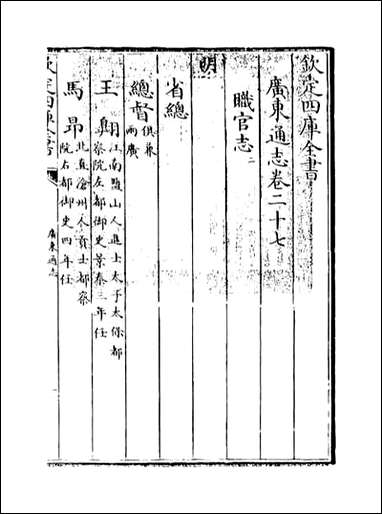 欽定四庫全書
廣東通志卷二十七
職官志二
明
省總
總督俱兼兩廣
王翺江南鹽山人進士太子太保都察院左都御史景泰三年任
馬昂北直滄州人貢士都察院右都御史四年任
欽定四庫全書
廣東通志